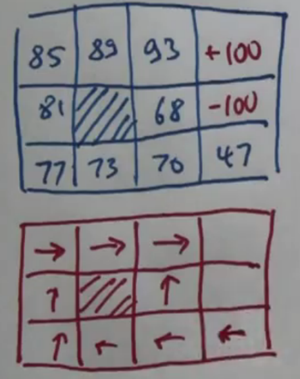 85 89 93 +100
81 68 -100
77 73 70 47
→ → →
↑ ↑
↑ ← ← ←